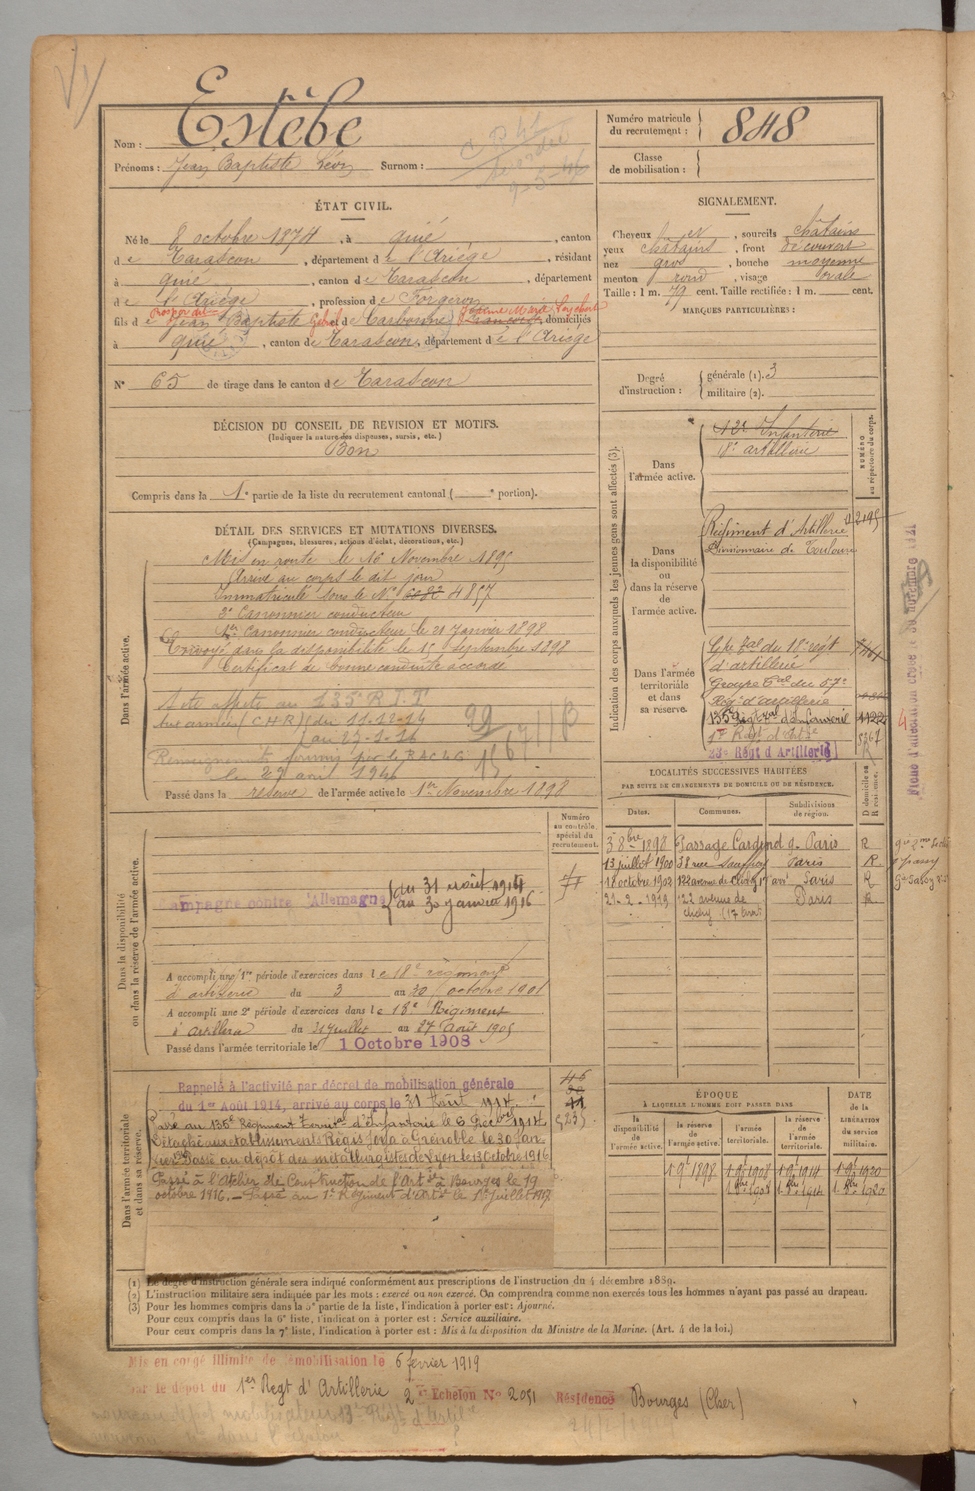 Nom : Estèbe
Prénoms : Jean Baptiste Léon Surnom :
Numéro matricule du recrutement : 848
Classe de mobilisation :
ÉTAT CIVIL.
Né le 8 octobre 1874, à quié, canton
de Tarascon, département de l'Ariège, résidant
à quié, canton de Tarascon, département
de l'Ariège, profession de Forgeron
fils de Jean Baptiste et de Carbonne Françoise, domiciliés
à quié, canton de Tarascon, département de l'Ariège
N° 65 de tirage dans le canton de Tarascon
SIGNALEMENT.
Cheveux et, sourcils châtains
yeux châtains, front découvert
nez gros, bouche moyenne
menton rond, visage ovale
Taille : 1 m. 79 cent. Taille rectifiée : 1 m. cent.
MARQUES PARTICULIÈRES :
Degré d'instruction : générale (1). 3
militaire (2).
DÉCISION DU CONSEIL DE REVISION ET MOTIFS.
(Indiquer la nature des dispenses, sursis, etc.)
Bon
Compris dans la 1e partie de la liste du recrutement cantonal ( e portion).
DÉTAIL DES SERVICES ET MUTATIONS DIVERSES.
(Campagnes, blessures, actions d'éclat, décorations, etc.)
Dans l'armée active.
Mis en route le 16 Novembre 1895
Arrivé au corps le dit jour
Immatriculé sous le N° 4857
2e Canonnier conducteur
1er Canonnier conducteur le 21 Janvier 1898
Envoyé dans la disponibilité le 15 Septembre 1898
Certificat de bonne conduite accordé
A été affecté au 135e R.I.T
aux armées (C.H.R) du 11-12-14
au 27-1-16
Renseignements fournis par le
le 29 avril 1940
Passé dans la réserve de l'armée active le 1er Novembre 1898
Indication des corps auxquels les jeunes gens sont affectés (3).
NUMÉRO au répertoire du corps.
Dans l'armée active.
12e Infanterie
18e artillerie
Dans la disponibilité ou dans la réserve de l'armée active.
Régiment d'Artillerie
Divisionnaire de Toulouse
Dans l'armée territoriale et dans sa réserve.
Gpe Tal du 18e régt
d'artillerie
Groupe Tal du 57e
Rég. d'artillerie
135e Régt Tal d'Infanterie 1122
1er Régt d'Artie
23e Régt d Artillerie R
Fiche d'allocation créée le 30 novembre 1921
LOCALITÉS SUCCESSIVES HABITÉES
PAR SUITE DE CHANGEMENTS DE DOMICILE OU DE RÉSIDENCE.
Dates. Communes. Subdivisions de région. D domicile ou R résidence.
3 8bre 1898 Passage Cardinal 9 Paris R
13 juillet 1900 38 rue Sauffroy Paris R
18 octobre 1902 122 avenue de Clichy 17e arrt Paris R
21-2-1919 122 avenue de Clichy (17e arrt) Paris R
Dans la disponibilité ou dans la réserve de l'armée active.
Numéro au contrôle spécial du recrutement.
Campagne contre l'Allemagne du 31 août 1914
au 30 janvier 1916
A accompli une 1re période d'exercices dans le 18e régiment
d'artillerie du 3 au 30 octobre 1901
A accompli une 2e période d'exercices dans le 18e Régiment
d'artillerie du 31 juillet au 27 août 1905
Passé dans l'armée territoriale le 1 Octobre 1908
Dans l'armée territoriale et dans sa réserve.
Rappelé à l'activité par décret de mobilisation générale
du 1er Août 1914, arrivé au corps le 31 Août 1914.
Passé au 135e Régiment Territal d'Infanterie le 6 1914
Détaché aux établissements Régis Joya à Grenoble le 30 Jan
vier 1916 Passé au dépôt des métallurgistes de Lyon le 13 Octobre 1916
Passé à l'Atelier de Construction de l'Artie à Bourges le 19
octobre 1916. — Passé au 1er Régiment d'Artie le 1er juillet 1917
ÉPOQUE
À LAQUELLE L'HOMME DOIT PASSER DANS
la disponibilité de l'armée active. la réserve de l'armée active. l'armée territoriale. la réserve de l'armée territoriale. DATE de la LIBÉRATION du service militaire.
1 9bre 1898 1 9bre 1908 1 9bre 1914 1 9bre 1920
1 8bre 1908 1 8bre 1914 1 8bre 1920
(1) Le degré d'instruction générale sera indiqué conformément aux prescriptions de l'instruction du 4 décembre 1889.
(2) L'instruction militaire sera indiquée par les mots : exercé ou non exercé. On comprendra comme non exercés tous les hommes n'ayant pas passé au drapeau.
(3) Pour les hommes compris dans la 5e partie de la liste, l'indication à porter est : Ajourné.
Pour ceux compris dans la 6e liste, l'indication à porter est : Service auxiliaire.
Pour ceux compris dans la 7e liste, l'indication à porter est : Mis à la disposition du Ministre de la Marine. (Art. 4 de la loi.)
Mis en congé illimité de démobilisation le 6 février 1919
par le dépôt du 1er Regt d'Artillerie 2e Echelon N° 2051 Résidence Bourges (Cher)